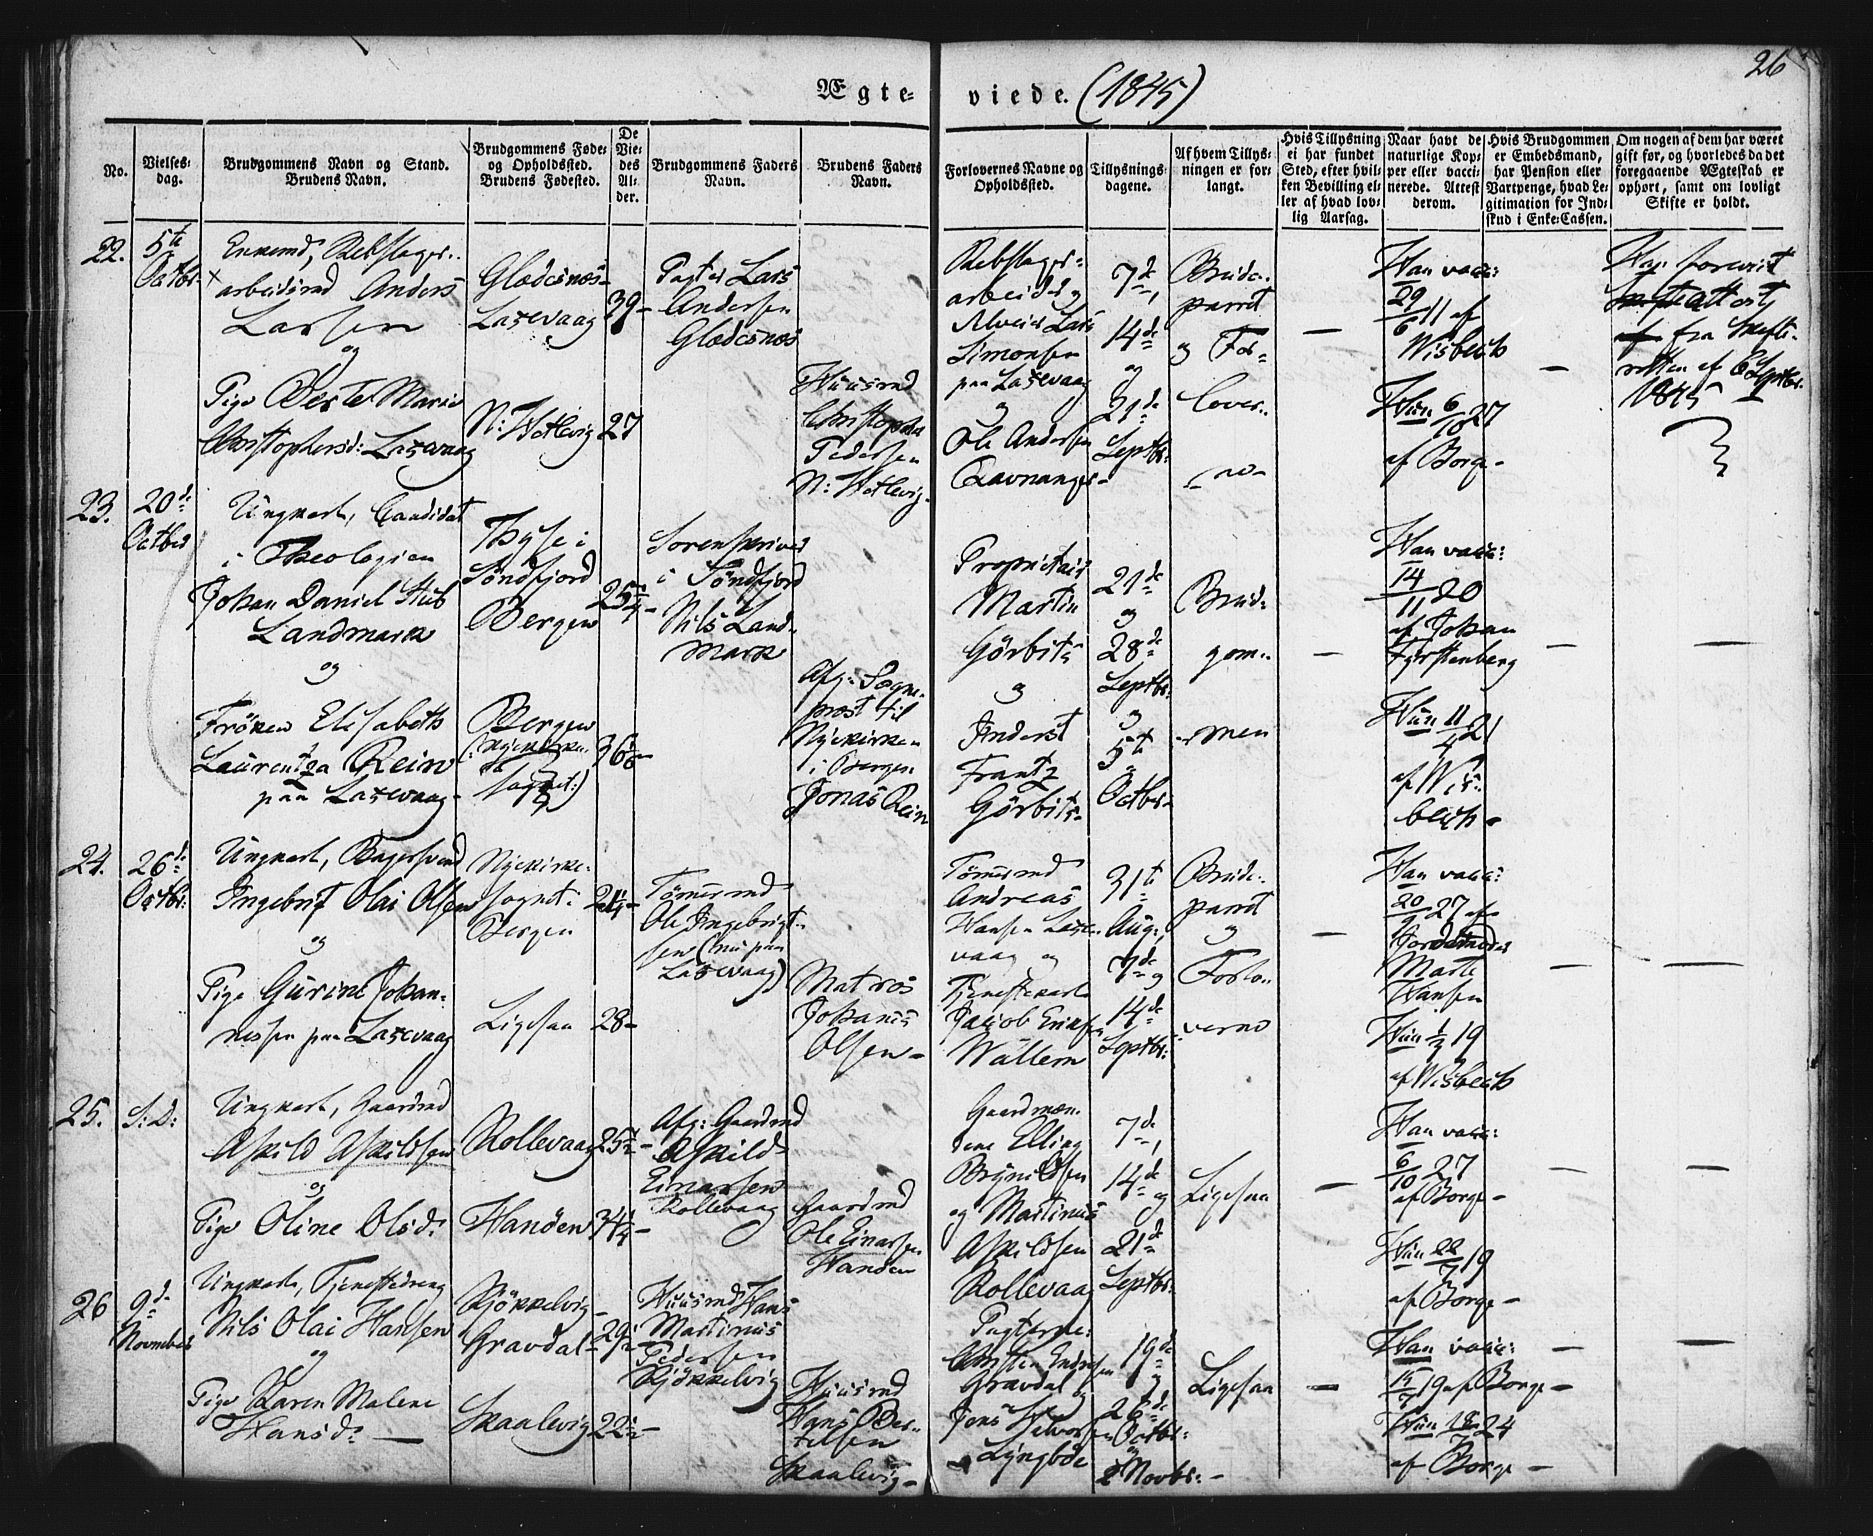 26
Ægte-viede. (1845)
No.
Vielses-
dag.
Brudgommens Navn og Stand.
Brudens Navn.
Brudgommens Føde-
og Opholdssted.
Brudens Fødested.
De
Vie-
des
Al-
der.
Brudgommens Faders
Navn.
Brudens Faders
Navn.
Forlovernes Navne og
Opholdssted.
Tillysnings-
dagene.
Af hvem Tillys-
ningen er for-
langt.
Hvis Tillysning
ei har fundet
Sted, efter hvil-
ken Bevilling el-
ler af hvad lov-
lig Aarsag.
Naar havt de
naturlige Kop-
per eller vacci-
nerede. Attest
derom.
Hvis Brudgommen
er Embedsmand,
har Pension eller
Vartpenge, hvad Le-
gitimation for Ind-
skud i Enke-Cassen.
Om nogen af dem har været
gift før, og hvorledes da det
foregaaende Ægteskab er
ophørt, samt om lovligt
Skifte er holdt.
22.
5te
Octbr.
Enkemd, Rebslager-
arbeidsmd Anders
Larsen
og
Pige Berte Marie
Christophersd: Laxevaag
Gladesnæs
Laxevaag
N: Hetlevig
39
27
Lars
Andersen
Gladesnæs
Huusmd
Christopher
Pedersen
N: Hetlevig
Rebslager-
arbeider
Lars
Simonsen
paa Laxevaag
og
Ole Andersen
Ravnanger
7de,
14de
og
21de
Septbr:
Brude-
parret
og For-
lover-
ne
Han vacc:
29/6 11 af
Wisbech
Hun 6/10 27
af Borge
Han foreviist
attest
fra Skifte-
retten af 6 Septbr.
1845
23.
20de
Octber
Ungkarl, Candidat
i Theologien
Johan Daniel Stub
Landmark
og
Frøken Elisabeth
Laurentza Rein
paa Laxevaag
Søndfjord
Bergen
Bergen
25
36
Sorenskriver
i Søndfjord
Nils Land-
mark
Afg: Sogne-
præst til
Nyekirken
i Bergen
Jonas Rein
Proprietair
Martin
Görbitz
og
Frantz
Görbitz
21de
og
28de
Septbr:
og
5te
Octbr.
Brud-
gom-
men
Han vacc:
14/11 20
af Johan
Fyrstenberg
Hun 11/4 21
af Wis-
bech
24.
26de
Octbr:
Ungkarl, Bagersvend
Ingebrigt Olai Olsen
og
Pige Gurine Johan-
nessen paa Laxevaag
Nyekirke-
sognet i
Bergen
Ligesaa
28
Tømmermd
Ole Ingebrigt-
sen (nu paa
Laxevaag)
Matros
Johannes
Olsen
Tømmermd
Andreas
Hansen Laxe-
vaag og
Tjenestekarl
Jacob Eriksen
Wallem
31te
Aug:,
7de og
14de
Septbr:
Brude-
parret
og
Forlo-
verne
Han vacc:
20/9 27 af
Jordemoder
Marte
Hansen
Hun 1/7 19
af Wisbech
25.
S: D:
Ungkarl, Gaardmd
Askild Askildsen
og
Pige Oline Olsd:
Rollevaag
Hanøen
Afg: Gaardmd
Askild
Einarsen
Rollevaag
Gaardmd
Ole Einarsen
Hanøen
Gaardmæn-
dene Elling
Olsen
og Martinus
Askildsen
Rollevaag
7de,
14de og
21de
Septbr:
Ligesaa
Han vacc:
6/10 27
af Borge
Hun 22/7 19
af Borge
26
9de
Novmeber
Ungkarl, Tjenestedreng
Nils Olai Hansen
og
Pige Karen Malene
Hansd:
Kjøkkelvig
Gravdal
Skaalevig
Huusmd Hans
Martinus
Pedersen
Kjøkkelvig
Huusmd
Hans Ber-
telsen
Skaalevig
Pagterne:
Gravdal og
Jens
Lyngbøe
19de
og
26de
Octbr:
og
2 Novbr:
Ligesaa
Han vacc:
15/7 19 af Borge
Hun 24
af Borge